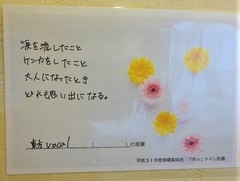 涙を流したこと
ケンカをしたこと
大人になったとき
どれも思い出になる。
vocal ( )の言葉
平成31年度保健委員会 「ホッ」トイレ企画